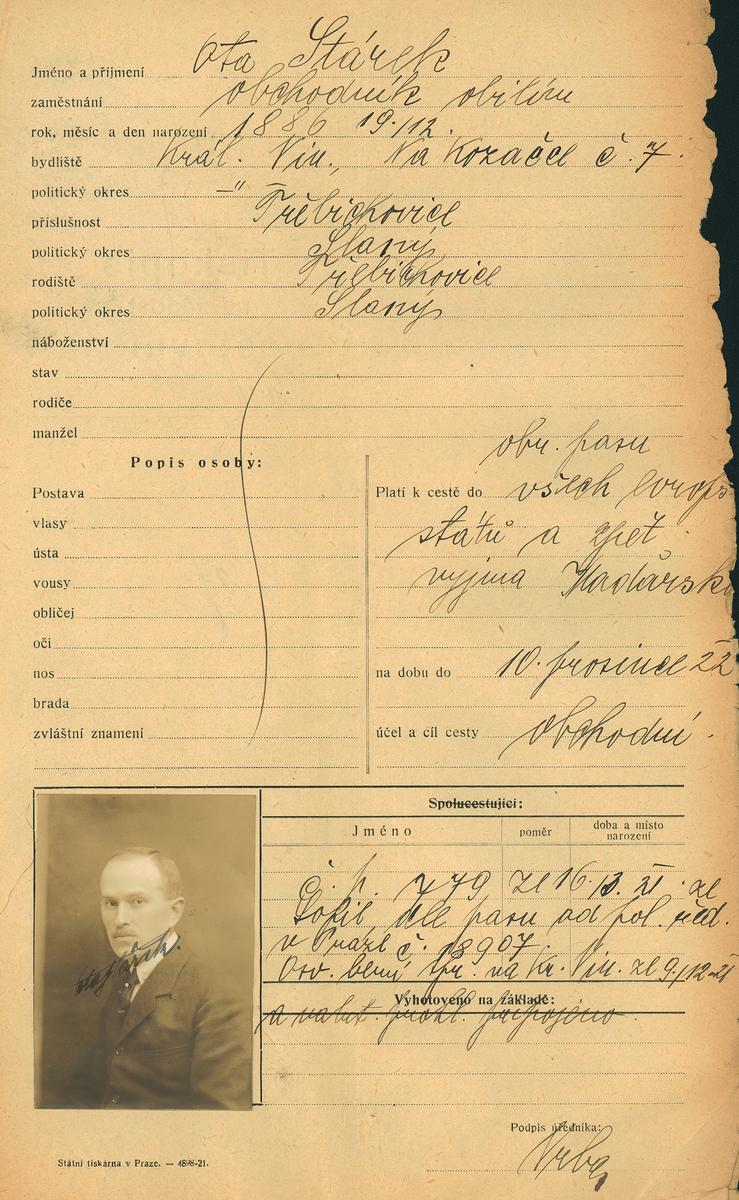 Jméno a příjmení Ota Stárek
zaměstnání obchodník obilím
rok, měsíc a den narození 1886 19./12.
bydliště Král. Vin., Na Kozačce č. 7.
politický okres —"
příslušnost Třebichovice
politický okres Slaný
rodiště Třebichovice
politický okres Slaný
náboženství
stav
rodiče
manžel
Popis osoby:
Postava
vlasy
ústa
vousy
obličej
oči
nos
brada
zvláštní znamení
obn. pasu
Platí k cestě do všech evrops
států a zpět
vyjma Maďarska
na dobu do 10. prosince 22
účel a cíl cesty obchodní.
Spolucestující:
Jméno poměr doba a místo narození
Č. p. 779 ze 16./3. 21. ze
dle pasu od pol. řed.
v Praze č. 18907.
Osv. berní spr. na Kr. Vin. ze 9./12. 21
Vyhotoveno na základě:
a valut. prohl. připojeno.
Ota Stárek.
Podpis úředníka:
Vrba
Státní tiskárna v Praze. —